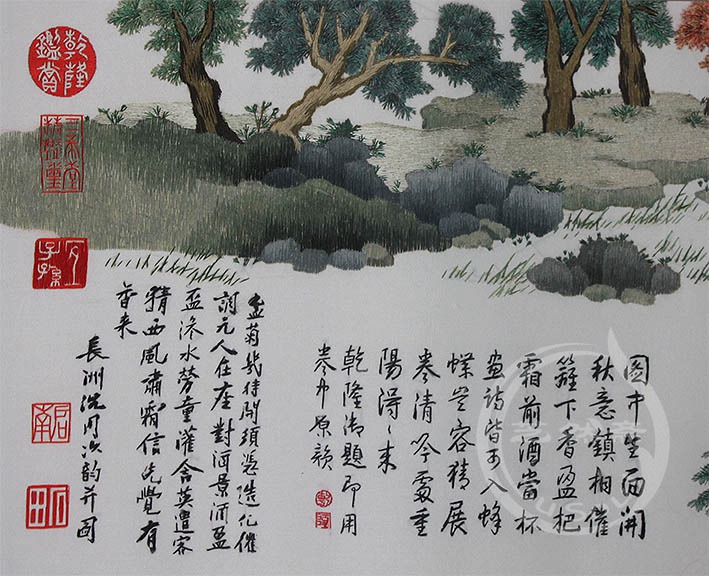 乾隆鑑賞
三希堂精鑑璽
宜子孫
圖中生面開
秋意鎮相催
籬下香盈把
霜前酒當杯
画詩皆可入蜂
蝶豈容猜展
卷清吟處重
陽得〻來
乾隆御題即用
卷中原韻
乾隆
盆菊幾待開須憑造化催
調元人在座對酒景酒盈
盃滲水勞童灌含英遣客
猜西風肅霜信先覺有
香来
長洲沈周次韵并圖
啓南
石田